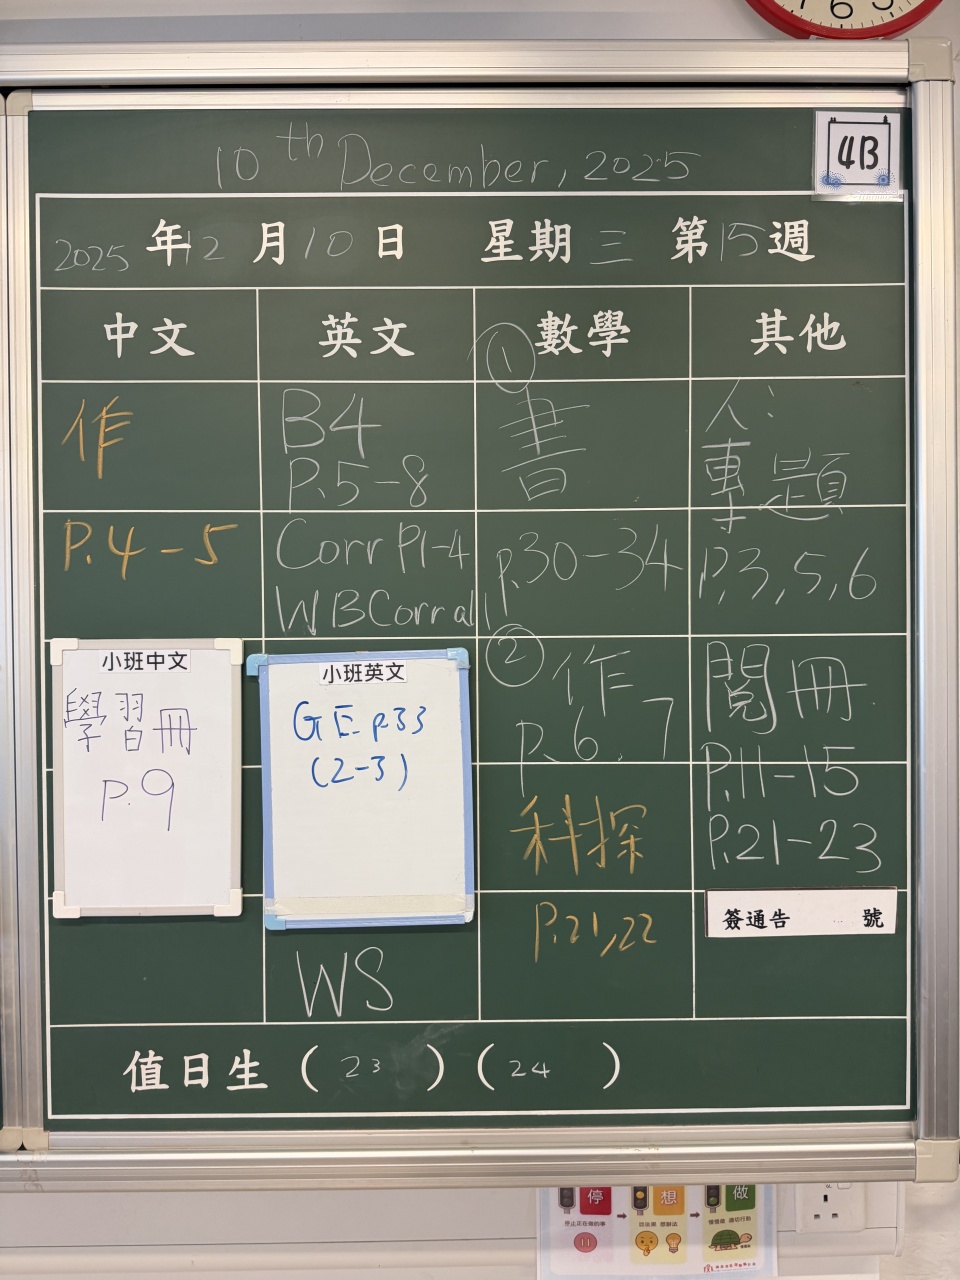 6
4B
10th December, 2025
2025 年 12 月 10 日 星期 三 第 15 週
中文 英文 數學 其他
作
P.4-5
小班中文
學習冊
P.9
B4
P.5-8
Corr P1-4
WBCorral
小班英文
GE p.33
(2-3)
WS
① 書
p.30-34
② 作
p.6,7
科探
P.21,22
人:
專題
P.3,5,6
閱冊
P.11-15
P.21-23
簽通告 號
值日生 ( 23 ) ( 24 )
停 想 做